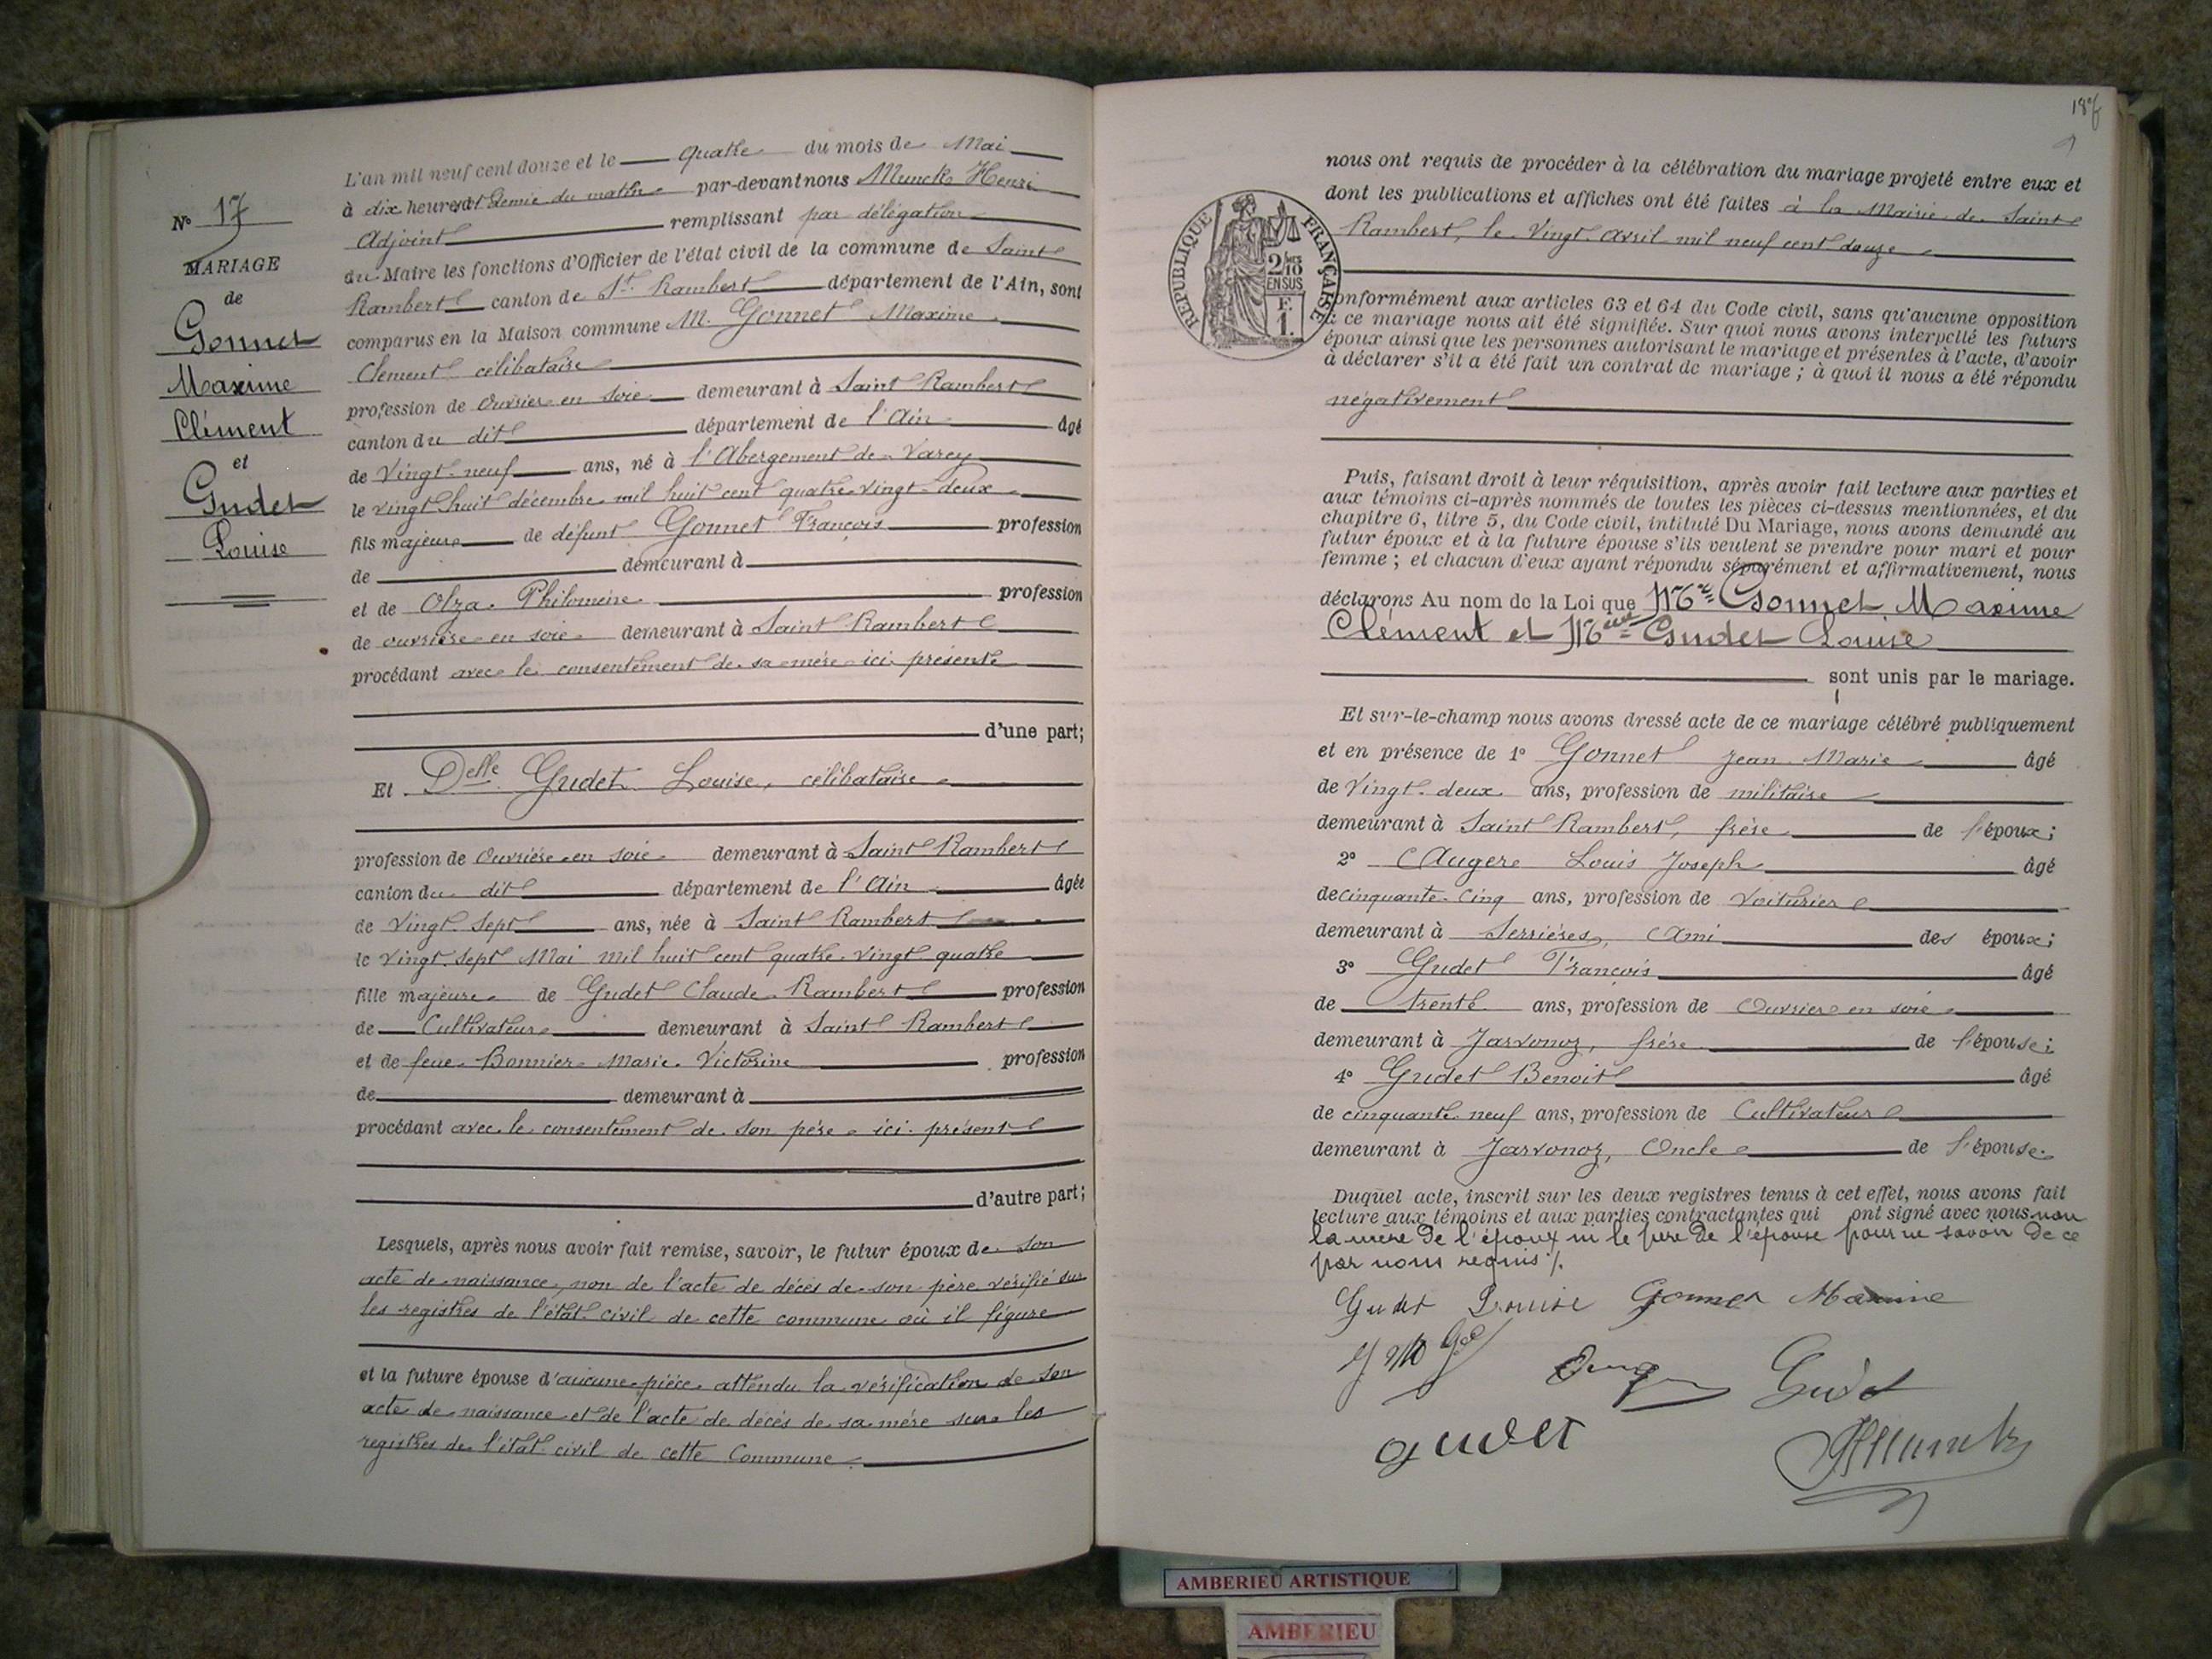 N° 17
MARIAGE
de
Gonnet
Maxime
Clément
et
Gudet
Louise
L'an mil neuf cent douze et le quatre du mois de Mai
à dix heures et demie du matin par-devant nous Munck Henri
Adjoint remplissant par délégation
du Maire les fonctions d'Officier de l'état civil de la commune de Saint
Rambert canton de St Rambert département de l'Ain, sont
comparus en la Maison commune M. Gonnet Maxime
Clement célibataire
profession de Ouvrier en soie demeurant à Saint Rambert
canton du dit département de l'Ain âgé
de Vingt-neuf ans, né à l'Abergement de Varey
le vingt huit décembre mil huit cent quatre-vingt-deux
fils majeur de défunt Gonnet François profession
de demeurant à
et de Olza Philomène profession
de ouvrière en soie demeurant à Saint Rambert
procédant avec le consentement de sa mère ici présente
d'une part;
Et Delle Gudet Louise, célibataire
profession de Ouvrière en soie demeurant à Saint Rambert
canton du dit département de l'Ain âgée
de Vingt-sept ans, née à Saint Rambert
le vingt-sept Mai mil huit cent quatre-vingt quatre
fille majeure de Gudet Claude Rambert profession
de Cultivateur demeurant à Saint Rambert
et de feue Bonnier Marie Victorine profession
de demeurant à
procédant avec le consentement de son père ici présent
d'autre part;
Lesquels, après nous avoir fait remise, savoir, le futur époux de son
acte de naissance, non de l'acte de décès de son père vérifié sur
les registres de l'état civil de cette commune où il figure
et la future épouse d'aucune pièce attendu la vérification de son
acte de naissance et de l'acte de décès de sa mère sur les
registres de l'état civil de cette Commune
nous ont requis de procéder à la célébration du mariage projeté entre eux et
dont les publications et affiches ont été faites à la Mairie de Saint
Rambert, le Vingt avril mil neuf cent douze
RÉPUBLIQUE FRANÇAISE
2/10
EN SUS
F.
1.
conformément aux articles 63 et 64 du Code civil, sans qu'aucune opposition
à ce mariage nous ait été signifiée. Sur quoi nous avons interpellé les futurs
époux ainsi que les personnes autorisant le mariage et présentes à l'acte, d'avoir
à déclarer s'il a été fait un contrat de mariage; à quoi il nous a été répondu
négativement
Puis, faisant droit à leur réquisition, après avoir fait lecture aux parties et
aux témoins ci-après nommés de toutes les pièces ci-dessus mentionnées, et du
chapitre 6, titre 5, du Code civil, intitulé Du Mariage, nous avons demandé au
futur époux et à la future épouse s'ils veulent se prendre pour mari et pour
femme; et chacun d'eux ayant répondu séparément et affirmativement, nous
déclarons Au nom de la Loi que Mr Gonnet Maxime
Clément et Melle Gudet Louise
sont unis par le mariage.
Et sur-le-champ nous avons dressé acte de ce mariage célébré publiquement
et en présence de 1° Gonnet Jean Marie âgé
de Vingt-deux ans, profession de militaire
demeurant à Saint Rambert, frère de l'époux;
2° Augere Louis Joseph âgé
de cinquante-cinq ans, profession de Voiturier
demeurant à Serrières, Ami des époux;
3° Gudet François âgé
de trente ans, profession de Ouvrier en soie
demeurant à Jarvonoz, frère de l'épouse;
4° Gudet Benoit âgé
de cinquante neuf ans, profession de Cultivateur
demeurant à Jarvonoz, Oncle de l'épouse.
Duquel acte, inscrit sur les deux registres tenus à cet effet, nous avons fait
lecture aux témoins et aux parties contractantes qui ont signé avec nous non
la mère de l'époux ni le père de l'épouse pour ne savoir de ce
par nous requis /.
Gudet Louise Gonnet Maxime
Gudet
Gudet
HMunck
AMBERIEU ARTISTIQUE
AMBERIEU